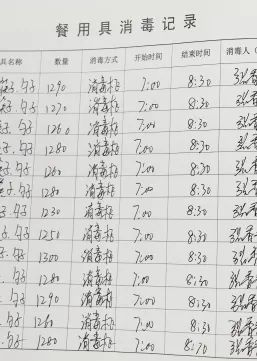 餐用具消毒记录
具名称 数量 消毒方式 开始时间 结束时间 消毒人（
子.勺子 1290 消毒柜 7:00 8:30 张
子.勺子 1270 消毒柜 7:00 8:30 张
子.勺子 1260 消毒柜 7:00 8:30 张
子.勺子 1280 消毒柜 7:00 8:30 张
子.勺子 1260 消毒柜 7:00 8:30 张
子.勺子 1280 消毒柜 7:00 8:30 张
子.勺子 1230 消毒柜 7:00 8:30 张
子.勺子 1250 消毒柜 7:00 8:30 张
子.勺子 1300 消毒柜 7:00 8:30 张
.勺子 1280 消毒柜 7:00 8:30 张
.勺子 1290 消毒柜 7:00 8:30 张
.勺子 1260 消毒柜 7:00 8:30 张
.勺子 1280 消毒柜 7:00 张